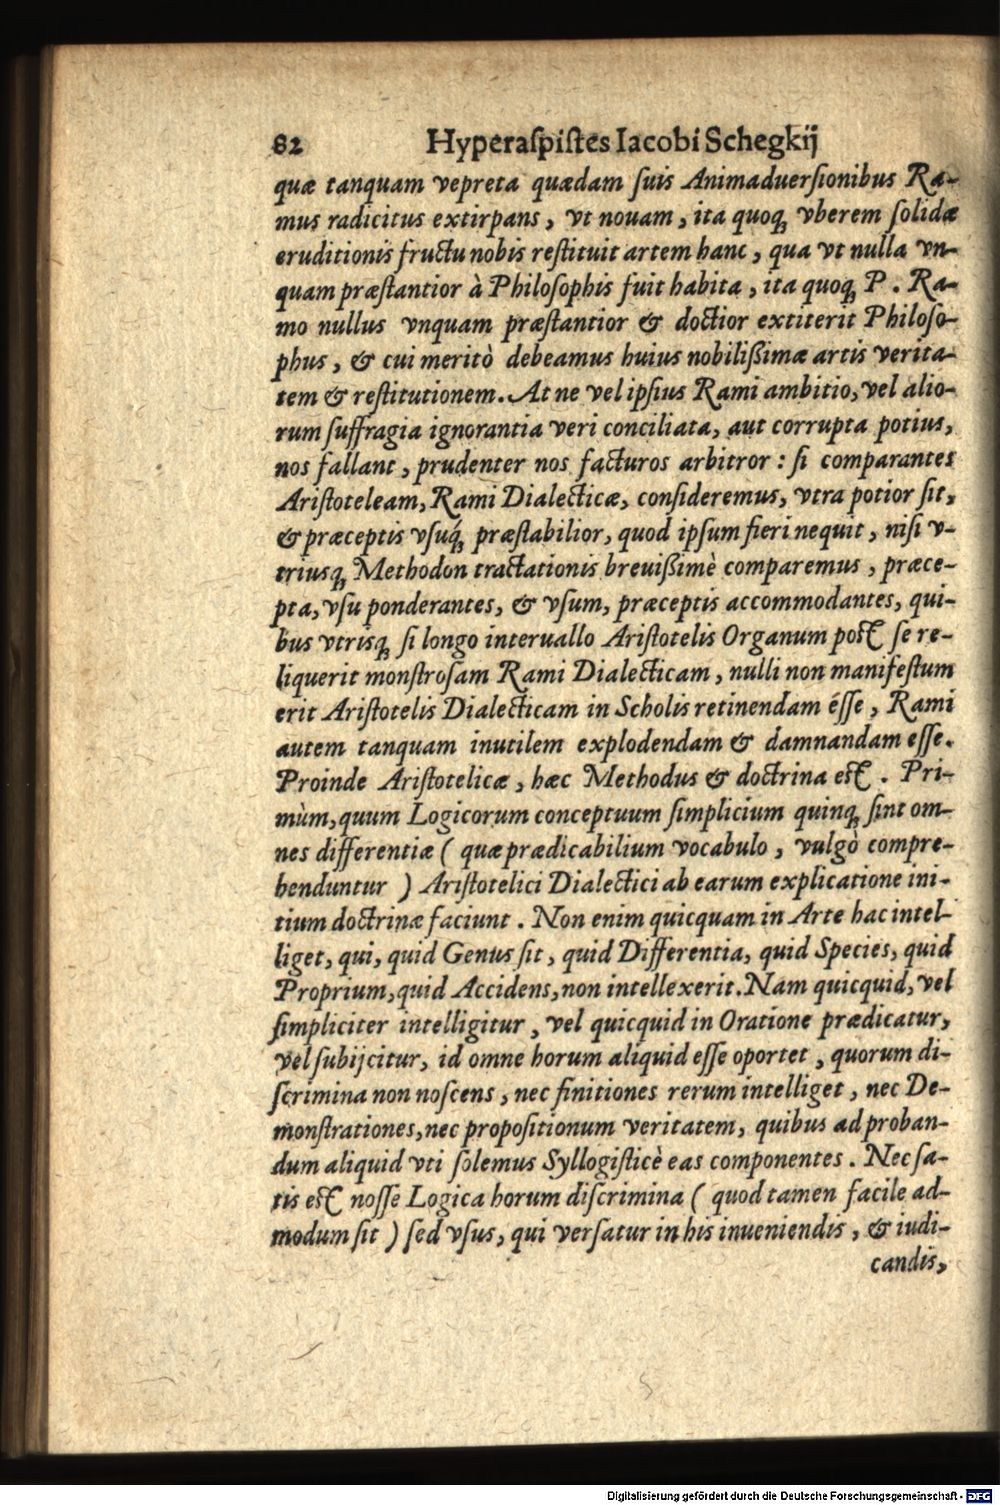 82 Hyperaſpiſtes Iacobi Schegkij
quæ tanquam vepreta quædam ſuis Animaduerſionibus Ra-
mus radicitus extirpans, vt nouam, ita quoq; vberem ſolidæ
eruditionis fructu nobis reſtituit artem hanc, qua vt nulla vn-
quam præſtantior à Philoſophis fuit habita, ita quoq; P. Ra-
mo nullus vnquam præſtantior & doctior extiterit Philoſo-
phus, & cui meritò debeamus huius nobilißimæ artis verita-
tem & reſtitutionem. At ne vel ipſius Rami ambitio, vel alio-
rum ſuffragia ignorantia veri conciliata, aut corrupta potius,
nos fallant, prudenter nos facturos arbitror: ſi comparantes
Ariſtoteleam, Rami Dialecticæ, conſideremus, vtra potior ſit,
& præceptis vſuq́; præſtabilior, quod ipſum fieri nequit, niſi v-
triusq; Methodon tractationis breuißimè comparemus, præce-
pta, vſu ponderantes, & vſum, præceptis accommodantes, qui-
bus vtrisq; ſi longo interuallo Ariſtotelis Organum poſt ſe re-
liquerit monſtroſam Rami Dialecticam, nulli non manifeſtum
erit Ariſtotelis Dialecticam in Scholis retinendam éſſe, Rami
autem tanquam inutilem explodendam & damnandam eſſe.
Proinde Ariſtotelicæ, hæc Methodus & doctrina eſt. Pri-
mùm, quum Logicorum conceptuum ſimplicium quinq; ſint om-
nes differentiæ (quæ prædicabilium vocabulo, vulgò compre-
henduntur) Ariſtotelici Dialectici ab earum explicatione ini-
tium doctrinæ faciunt. Non enim quicquam in Arte hac intel-
liget, qui, quid Genus ſit, quid Differentia, quid Species, quid
Proprium, quid Accidens, non intellexerit. Nam quicquid, vel
ſimpliciter intelligitur, vel quicquid in Oratione prædicatur,
vel ſubijcitur, id omne horum aliquid eſſe oportet, quorum di-
ſcrimina non noſcens, nec finitiones rerum intelliget, nec De-
monſtrationes, nec propoſitionum veritatem, quibus ad proban-
dum aliquid vti ſolemus Syllogiſticè eas componentes. Nec ſa-
tis eſt noſſe Logica horum diſcrimina (quod tamen facile ad-
modum ſit) ſed vſus, qui verſatur in his inueniendis, & iudi-
candis,
Digitalisierung gefördert durch die Deutsche Forschungsgemeinschaft - DFG